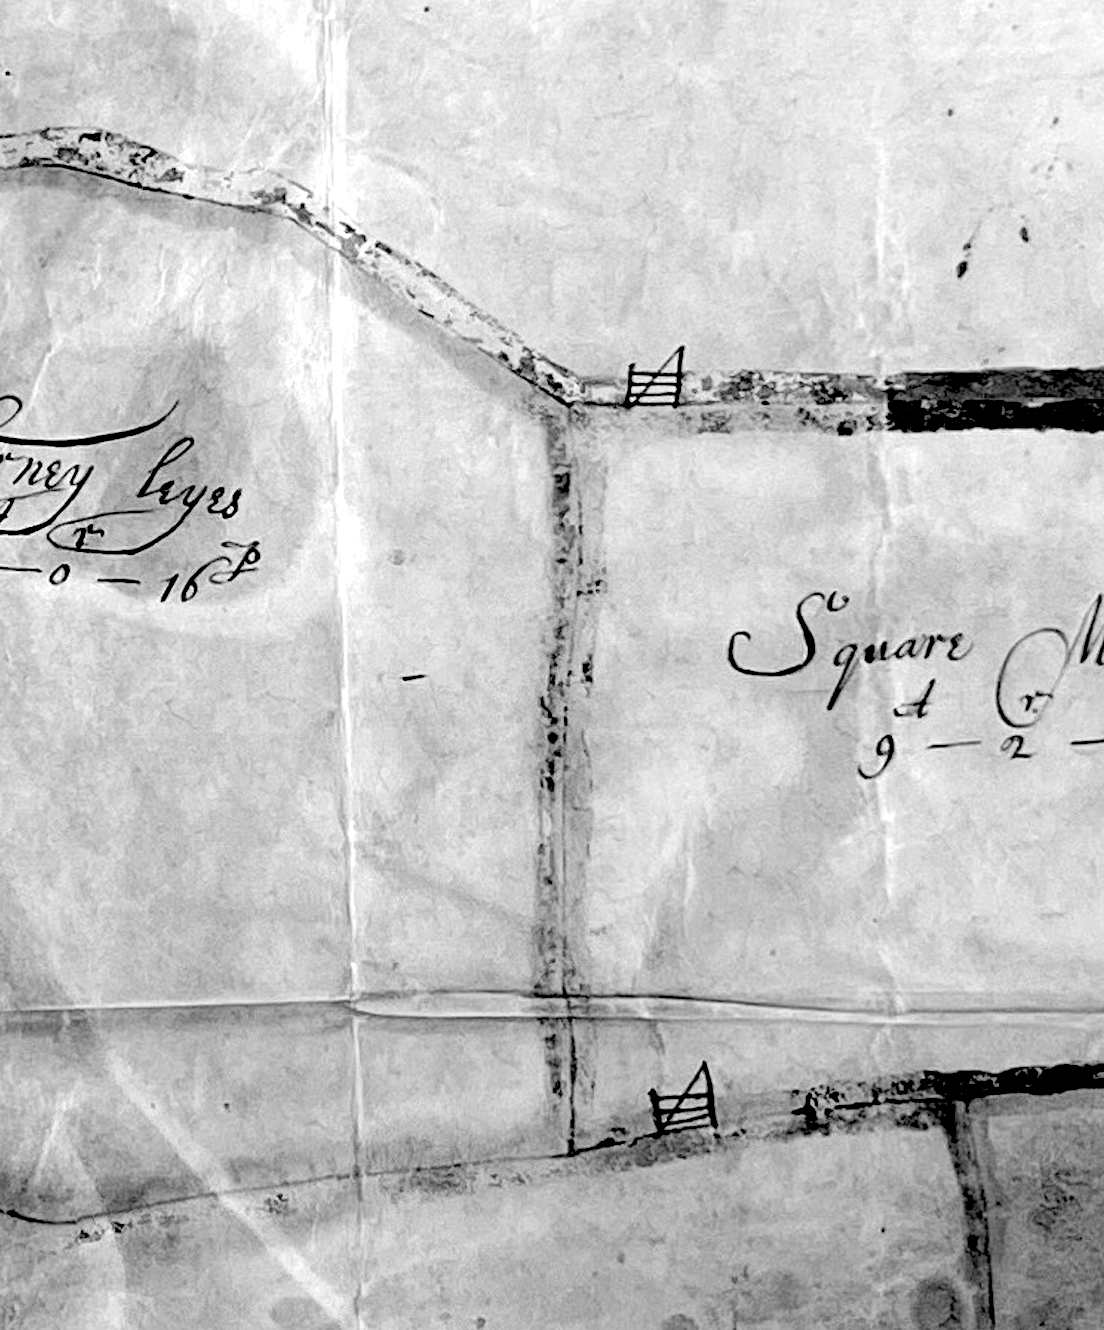 rney leyes
r
— 0 — 16 P
Square M
A r
9 — 2 —